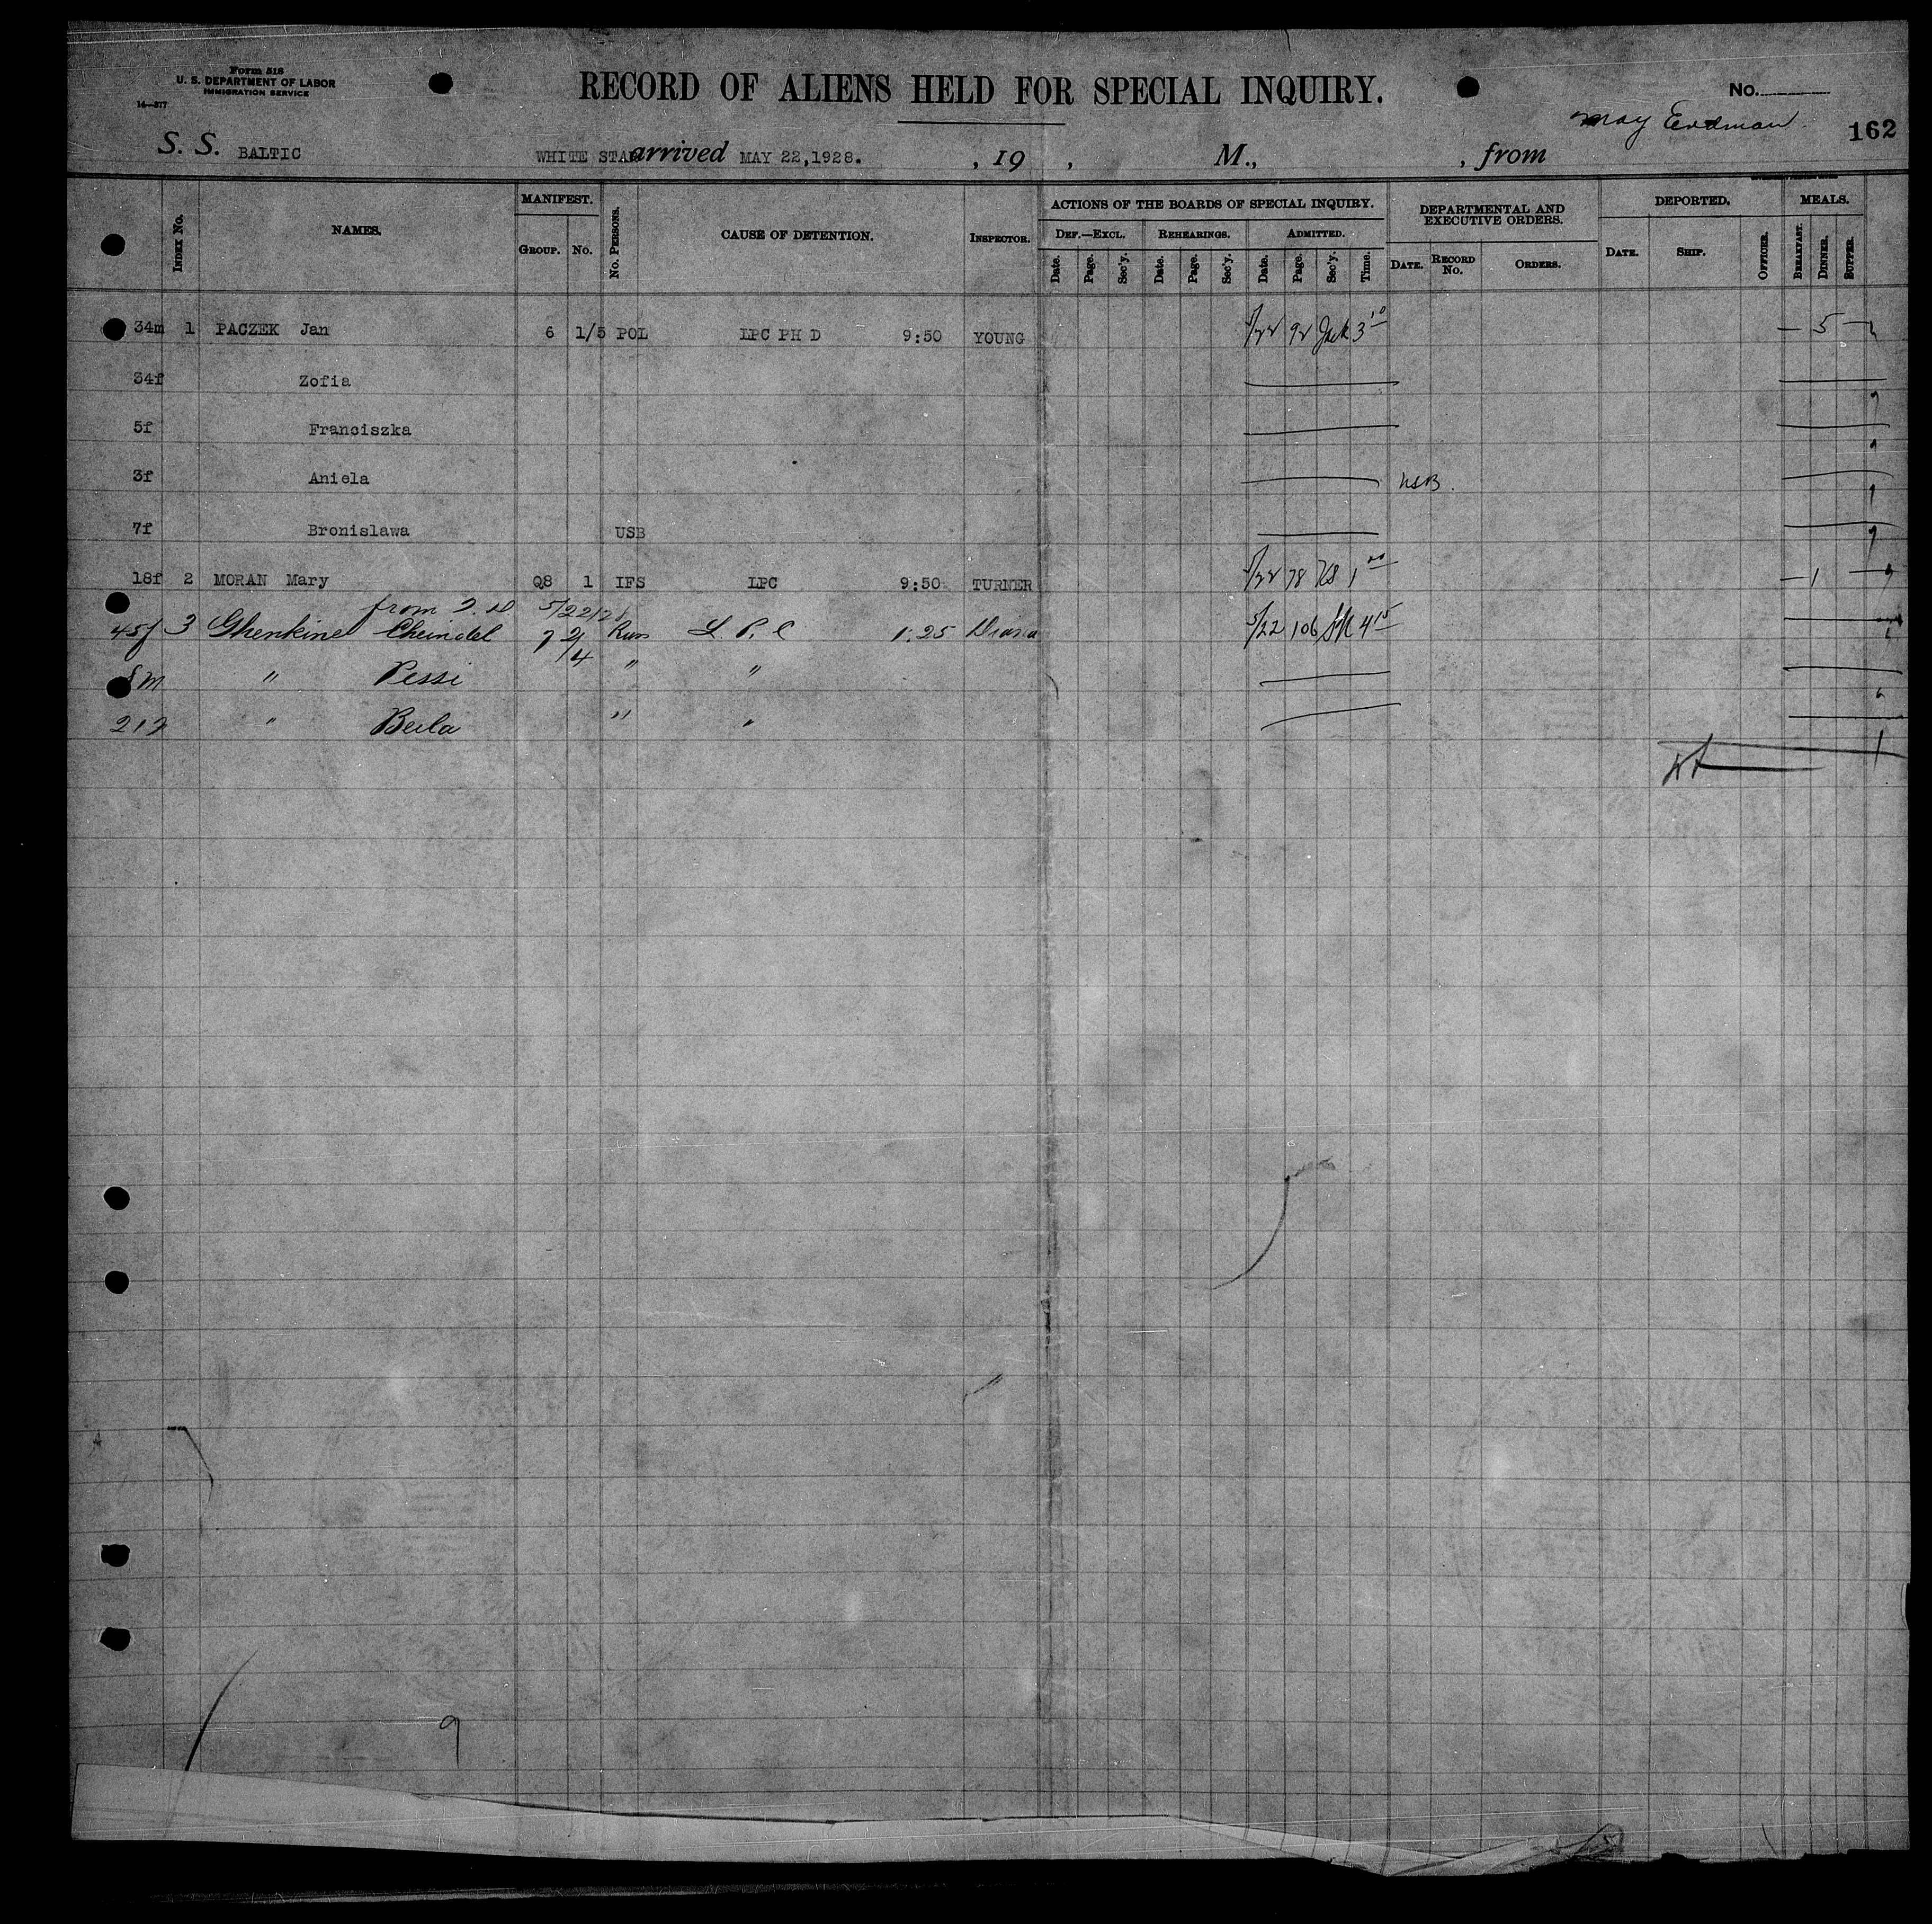 Form 518
U. S. DEPARTMENT OF LABOR
IMMIGRATION SERVICE
14—377
RECORD OF ALIENS HELD FOR SPECIAL INQUIRY.
No.
May Erdman
162
S. S. BALTIC WHITE STAR arrived MAY 22,1928. , 19 , M., , from
INDEX No. NAMES. MANIFEST. GROUP. No. No. PERSONS. CAUSE OF DETENTION. INSPECTOR. ACTIONS OF THE BOARDS OF SPECIAL INQUIRY. DEF.—EXCL. Date. Page. Sec'y. REHEARINGS. Date. Page. Sec'y. ADMITTED. Date. Page. Sec'y. Time. DEPARTMENTAL AND EXECUTIVE ORDERS. DATE. RECORD No. ORDERS. DEPORTED. DATE. SHIP. OFFICER. MEALS. BREAKFAST. DINNER. SUPPER.
34m 1 PACZEK Jan 6 1/5 POL LPC PH D 9:50 YOUNG 5/22 92 3 10 — 5 —
34f Zofia
5f Franciszka
3f Aniela USB.
7f Bronislawa USB
18f 2 MORAN Mary Q8 1 IFS LPC 9:50 TURNER 5/22 78 1 00 — 1 —
from T. D 5/22/28
45f 3 Ghenkine Cheindel 7 2/4 Rus L. P. C 1:25 Diana 5/22 106 4 15
8m " Pessi " "
21f " Beila " "
9